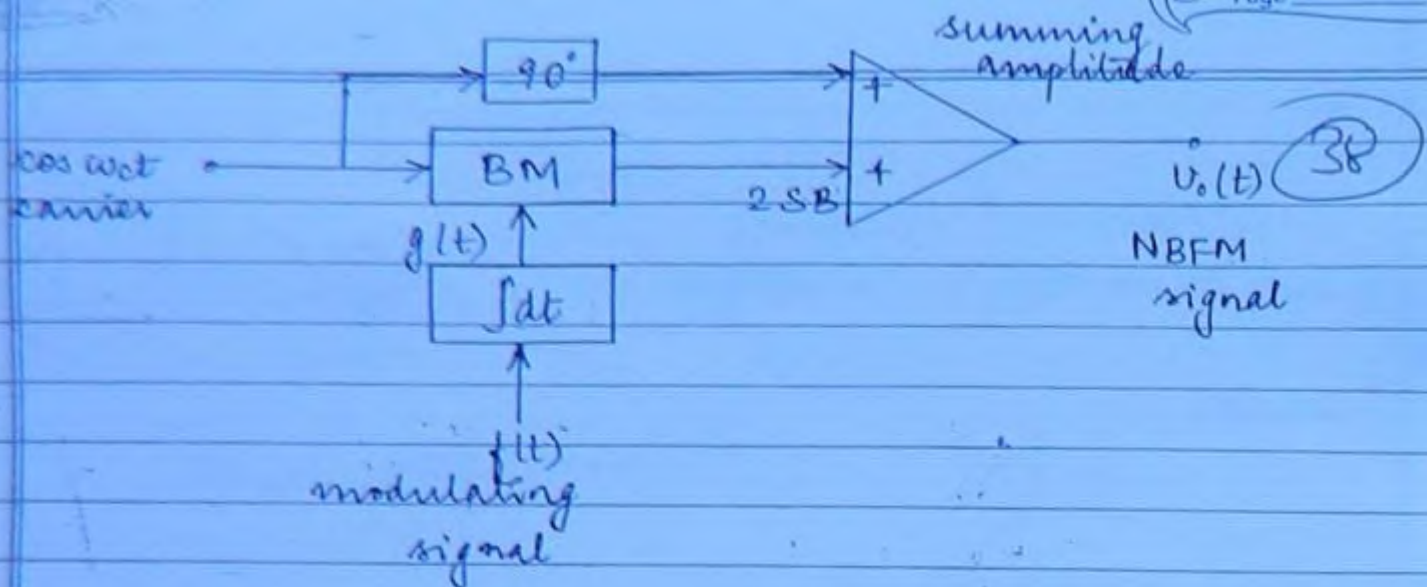 summing
amplitude
90°
+
cos wct
carrier
BM
2 SB
+
υ₀(t)
38
g(t)
NBFM
signal
∫dt
f(t)
modulating
signal